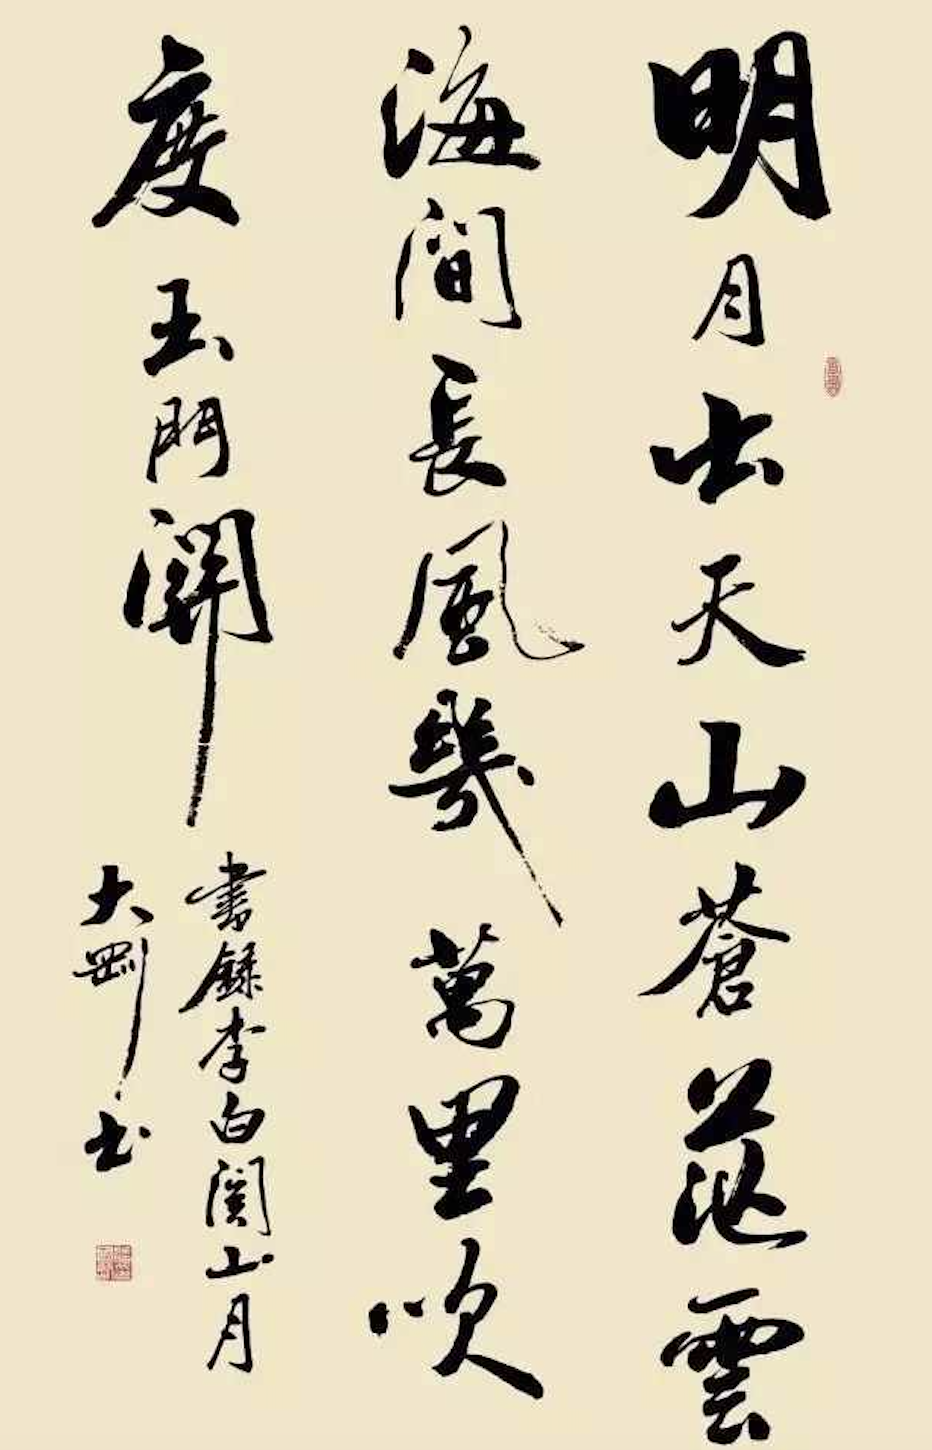 明月出天山蒼茫雲
海間長風幾萬里吹
度玉門關
書錄李白関山月
大剛书